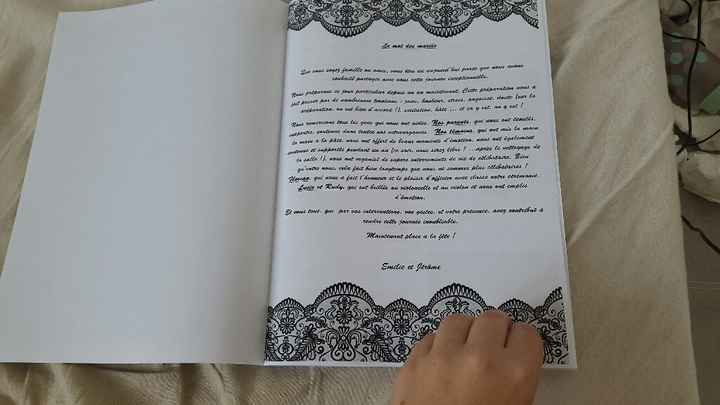 Le mot des mariés
Que vous soyez famille ou amis, vous êtes ici aujourd'hui parce que nous avons
souhaité partager avec vous cette journée exceptionnelle.
Nous préparons ce jour particulier depuis un an maintenant. Cette préparation nous a
fait passer par de nombreuses émotions : joie, bonheur, stress, angoisse, doute (sur la
préparation, on est bien d'accord !), excitation, hâte ... et ça y est, on y est !
Nous remercions tous les gens qui nous ont aidés. Nos parents, qui nous ont
supportés, soutenus dans toutes nos extravagances. Nos témoins, qui ont mis la main
la main à la pâte, nous ont offert de beaux moments d'émotion, nous ont également
soutenus et supportés pendant un an (ce soir, vous serez libres ! ...après le nettoyage de
la salle !), nous ont organisé de supers enterrements de vie de célibataire. Bien
qu'entre nous, cela fait bien longtemps que nous ne sommes plus célibataires !
qui nous a fait l'honneur et le plaisir d'officier avec classe notre cérémonie.
et Rudy, qui ont brillés au violoncelle et au violon et nous ont emplis
d'émotion.
Et vous tous, qui par vos interventions, vos gestes, et votre présence, avez contribué à
rendre cette journée inoubliable.
Maintenant place à la fête !
Emilie et Jérôme